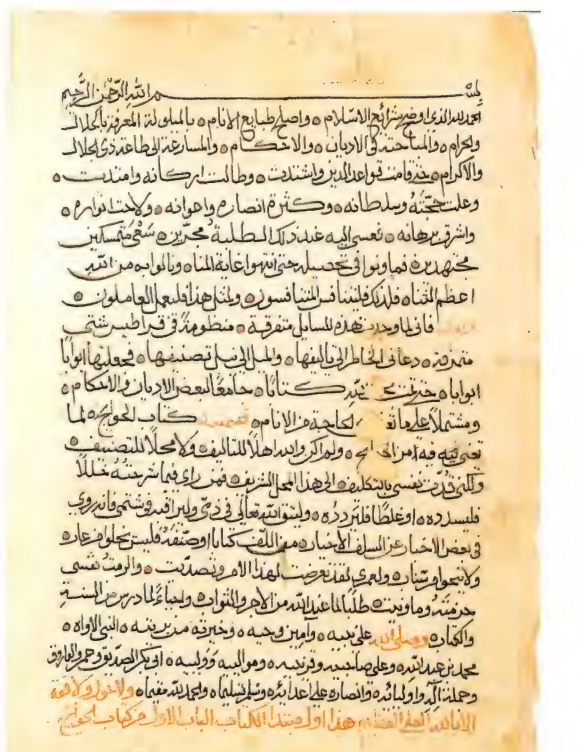 بسم الله الرحمن الرحيم
الحمد لله الذي اوضح شرائع الاسلام ه واصلح طبايع الانام ه بالحلال
والحرام ه في الاديان ه والاحكام ه والمسارعة الى طاعة ذي الجلال
والاكرام ه حتى قامت قواعد الدين واشتدت ه وطالت اركانه وامتدت ه
وعلت حجته وسلطانه ه وكثرة انصاره واعوانه ه ولاحت انواره ه
واشرق برهانه ه اليه عند ذلك الطلبة مجدين ه
مجتهدين ه فما ونوا في تحصيله حتى انتهوا غاية المناه ونالوا به من الله
اعظم ه فلذلك فليتنافس المتنافسون ه ولمثل هذا فليعمل العاملون ه
فاني لما وجدت هذه المسايل متفرقة ه منظومة في قراطيس شتى
ه دعاني الخاطر الى تاليفها ه والميل الى تصنيفها ه فجعلتها ابوابا
ابوابا ه كتابا ه جامعا لبعض الاديان والاحكام ه
ومشتملا على ما الحاجة من الانام ه كتاب الحوايج ه لما
فيه من ه ولم اكن والله اهلا للتاليف ه ولا محلا للتصنيف ه
ولكني نفسي بالتكليف ه الى هذا المحل الشريف ه فمن راى فيما شرحته خللا
فليسدده ه او غلطا فليردده ه وليتق الله تعالى في ذمي فانه روي
في بعض الاخبار عن السلف الاخيار ه من الف كتابا او صنفه فليس يخلو من عار ه
ولا ينجوا من ه ولعمري لقد تعرضت لهذا الامر وتصديت ه والزمت نفسي
ه طلبا لما عند الله من الاجر والثواب ه لما درس من السنة
والكتاب ه وصلى الله على نبيه ه وامين وحيه ه وخيرته من بريته ه النبي الاواه ه
محمد بن عبد الله ه وعلى صاحبيه ه ه ابو بكر الصديق وعمر الفاروق
وعلى اله واوليائه ه وانصاره على اعدائه ه وسلم تسليما ه والحمد لله ه ولا حول ولا قوة
الا بالله العلي العظيم ه هذا اول هذا الكتاب الباب الاول من كتاب الحوايج